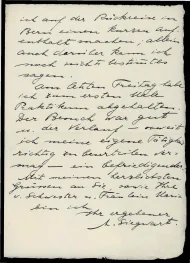 ich auf der Rückreise in
Bern einen kurzen Auf-
enthalt machen, allein
auch darüber kann ich
noch nichts bestimmtes
sagen.
Am letzten Freitag habe
ich zum ersten Male
Praktikum abgehalten.
Der Besuch war gut
u. der Verlauf – soweit
ich meine eigene Tätigkeit
richtig zu beurteilen ver-
mag – ein befriedigender.
Mit meinen herzlichsten
Grüssen an Sie, sowie Ihre
Schwester u. Fräulein
bin ich
Ihr ergebener
A. Siegwart.